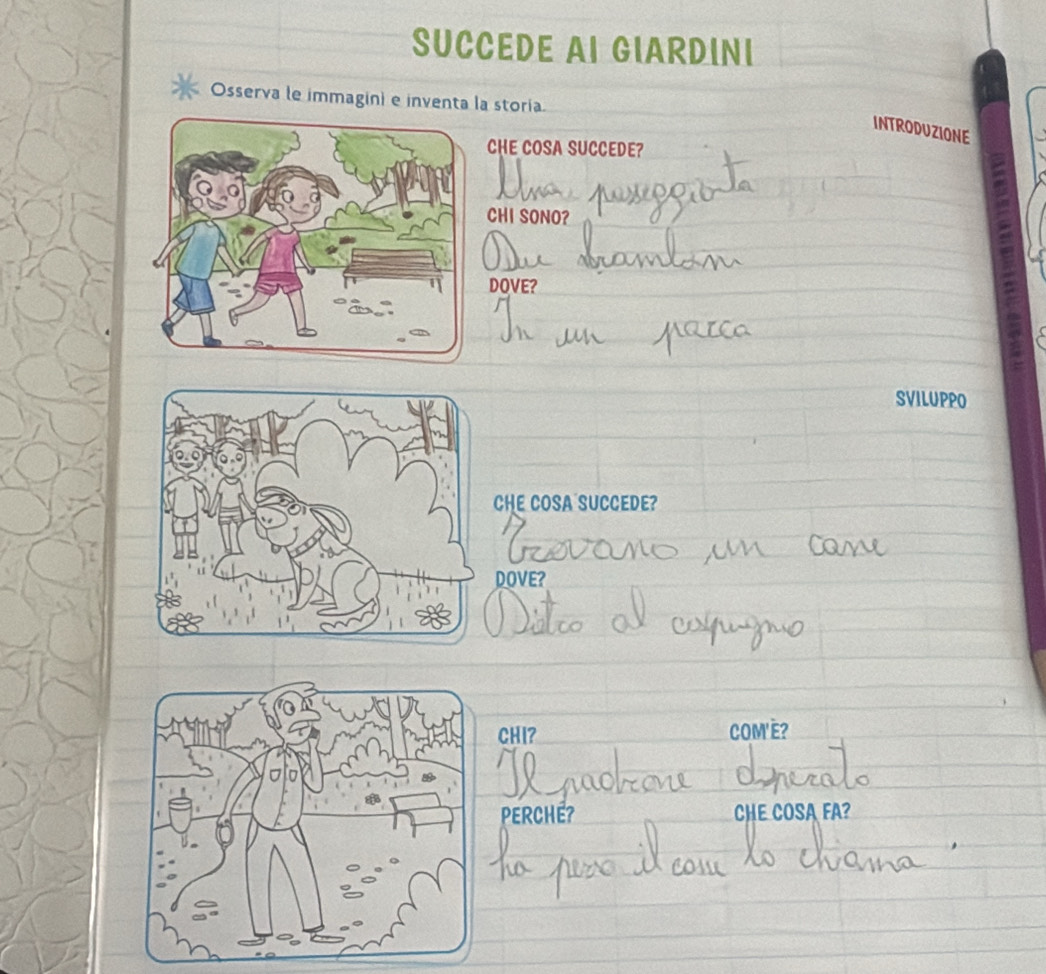 SUCCEDE AI GIARDINI
Osserva le immagini e inventa la storia.
INTRODUZIONE
CHE COSA SUCCEDE?
Una passeggiata
CHI SONO?
Due
DOVE?
In un parco
SVILUPPO
CHE COSA SUCCEDE?
Trovano un cane
DOVE?
Dietro al
CHI?
COM'È?
Il padrone
disperato
PERCHÉ?
CHE COSA FA?
ha perso il cane
lo chiama